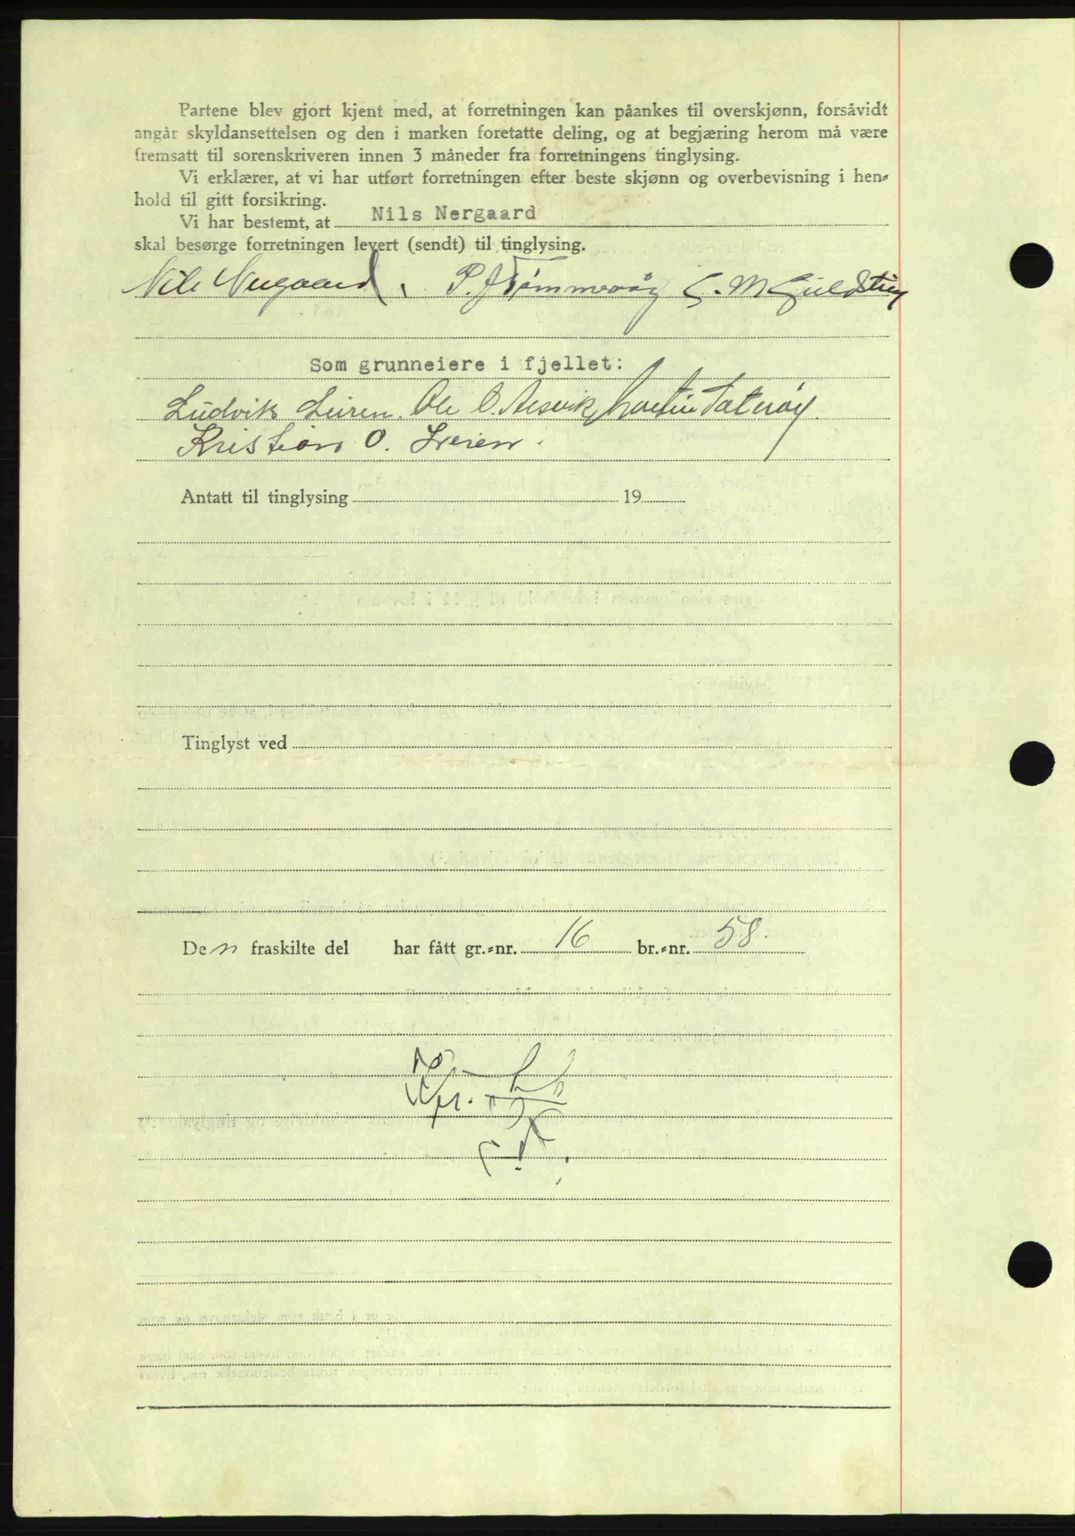 Partene blev gjort kjent med, at forretningen kan påankes til overskjønn, forsåvidt
angår skyldansettelsen og den i marken foretatte deling, og at begjæring herom må være
fremsatt til sorenskriveren innen 3 måneder fra forretningens tinglysing.
Vi erklærer, at vi har utført forretningen efter beste skjønn og overbevisning i hen-
hold til gitt forsikring.
Vi har bestemt, at Nils Nergaard
skal besørge forretningen levert (sendt) til tinglysing.
Nils Nergaard. P. J. Tømmervåg
Som grunneiere i fjellet:
Ludvik Leiren. Ole O. Martin
Kristian O. Leiren.
Antatt til tinglysing 19
Tinglyst ved
Den fraskilte del har fått gr.-nr. 16 br.-nr. 58.